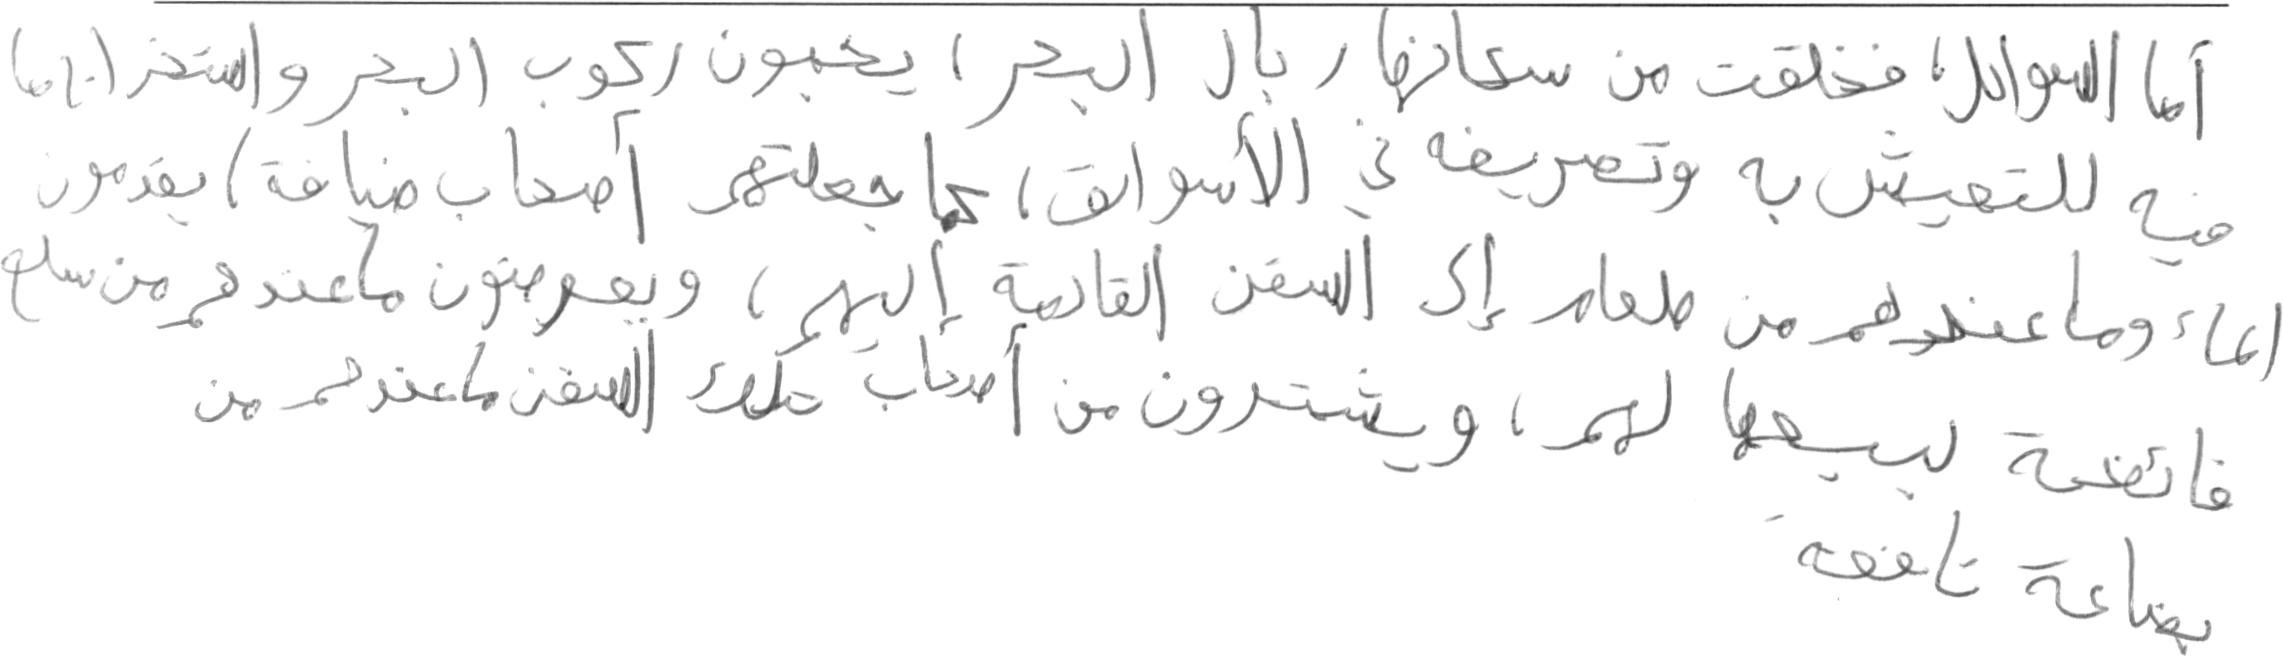 أما السواحل، فخلقت من سكانها رجال البحر، يحبون ركوب البحر واستخراج ما
فيه للتعيش به وتصريفه في الأسواق، كما جعلتهم أصحاب ضيافة، يقدمون
الماء وما عندهم من طعام إلى السفن القادمة إليهم، ويعرضون ما عندهم من سلع
فائضة لبيعها لهم، ويشترون من أصحاب تلك السفن ما عندهم من
بضاعة نافعة